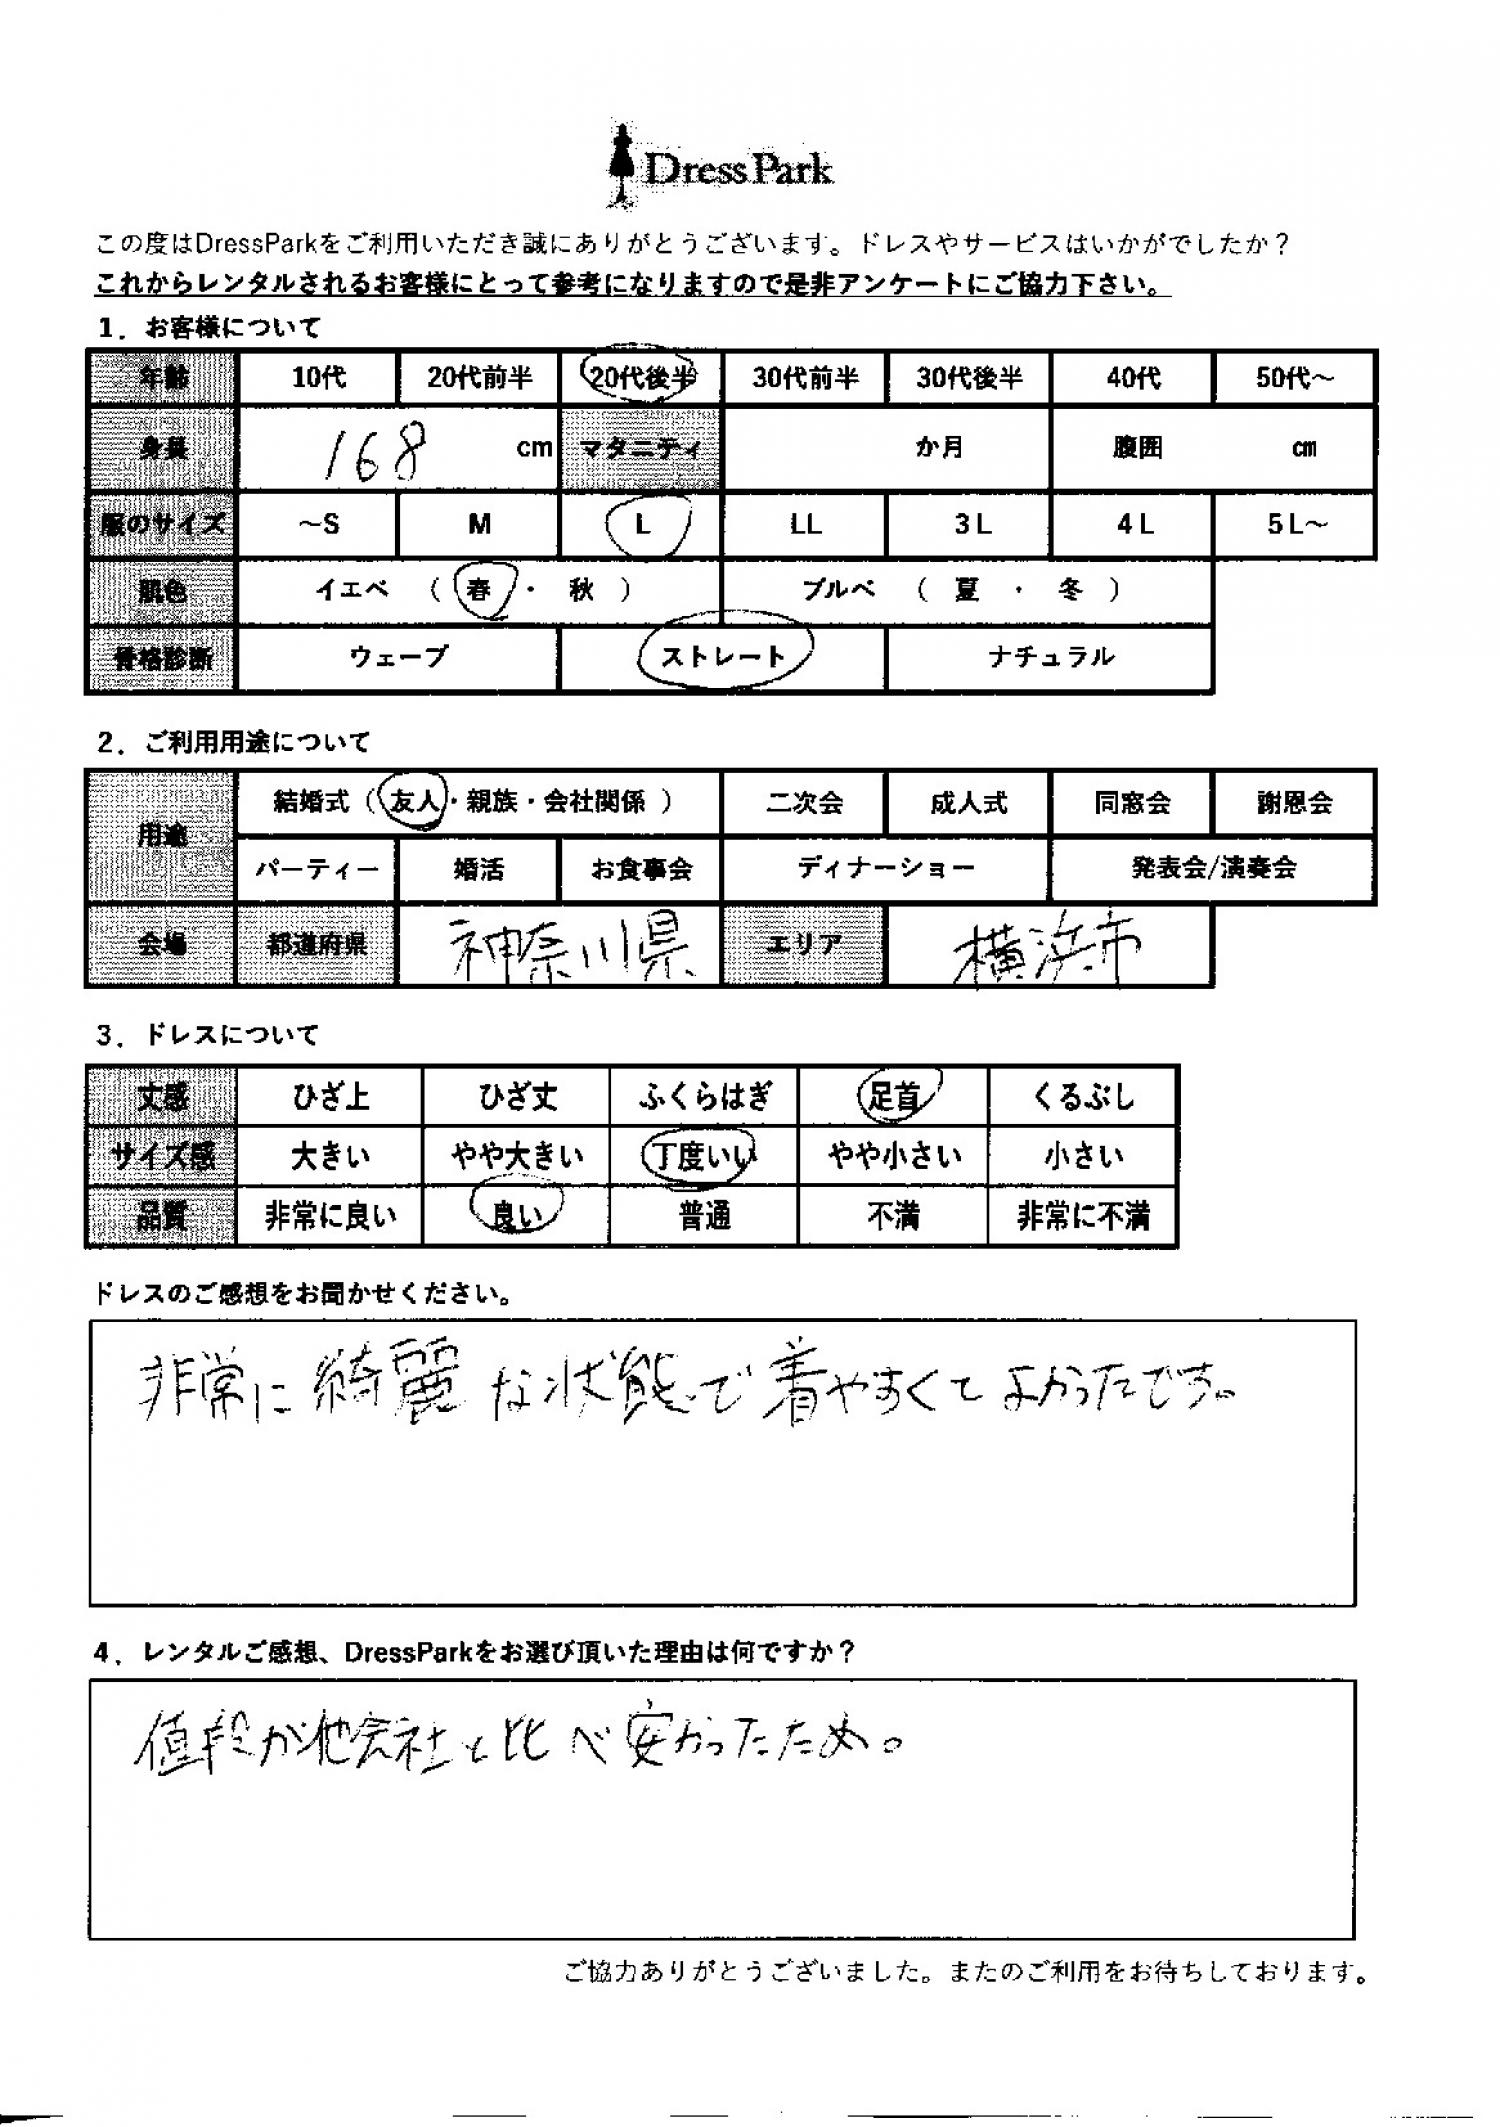 DressPark
この度はDressParkをご利用いただき誠にありがとうございます。ドレスやサービスはいかがでしたか？
これからレンタルされるお客様にとって参考になりますので是非アンケートにご協力下さい。
1．お客様について
年齢 10代 20代前半 20代後半 30代前半 30代後半 40代 50代～
身長 168 cm マタニティ か月 腹囲 ㎝
服のサイズ ～S M L LL 3L 4L 5L～
肌色 イエベ （ 春 ・ 秋 ） ブルベ （ 夏 ・ 冬 ）
骨格診断 ウェーブ ストレート ナチュラル
2．ご利用用途について
用途 結婚式（ 友人・親族・会社関係 ） 二次会 成人式 同窓会 謝恩会
パーティー 婚活 お食事会 ディナーショー 発表会/演奏会
会場 都道府県 神奈川県 エリア 横浜市
3．ドレスについて
丈感 ひざ上 ひざ丈 ふくらはぎ 足首 くるぶし
サイズ感 大きい やや大きい 丁度いい やや小さい 小さい
品質 非常に良い 良い 普通 不満 非常に不満
ドレスのご感想をお聞かせください。
非常に綺麗な状態で着やすくてよかったです。
4．レンタルご感想、DressParkをお選び頂いた理由は何ですか？
値段が他会社と比べ安かったため。
ご協力ありがとうございました。またのご利用をお待ちしております。